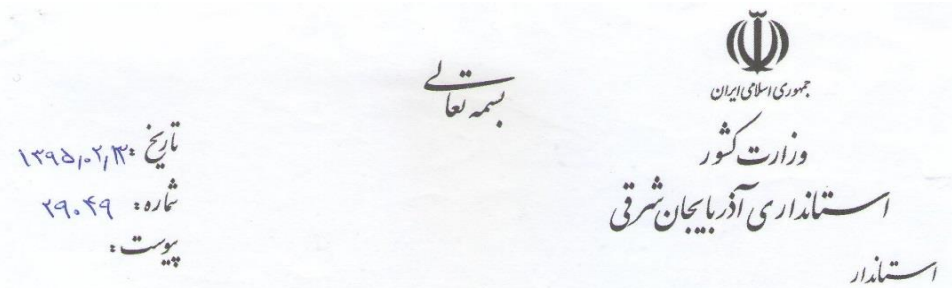 جمهوری اسلامی ایران
وزارت کشور
استانداری آذربایجان شرقی
استاندار
بسمه تعالی
تاریخ: ۱۳۹۵/۰۲/۱۳
شماره: ۲۹۰۴۹
پیوست: